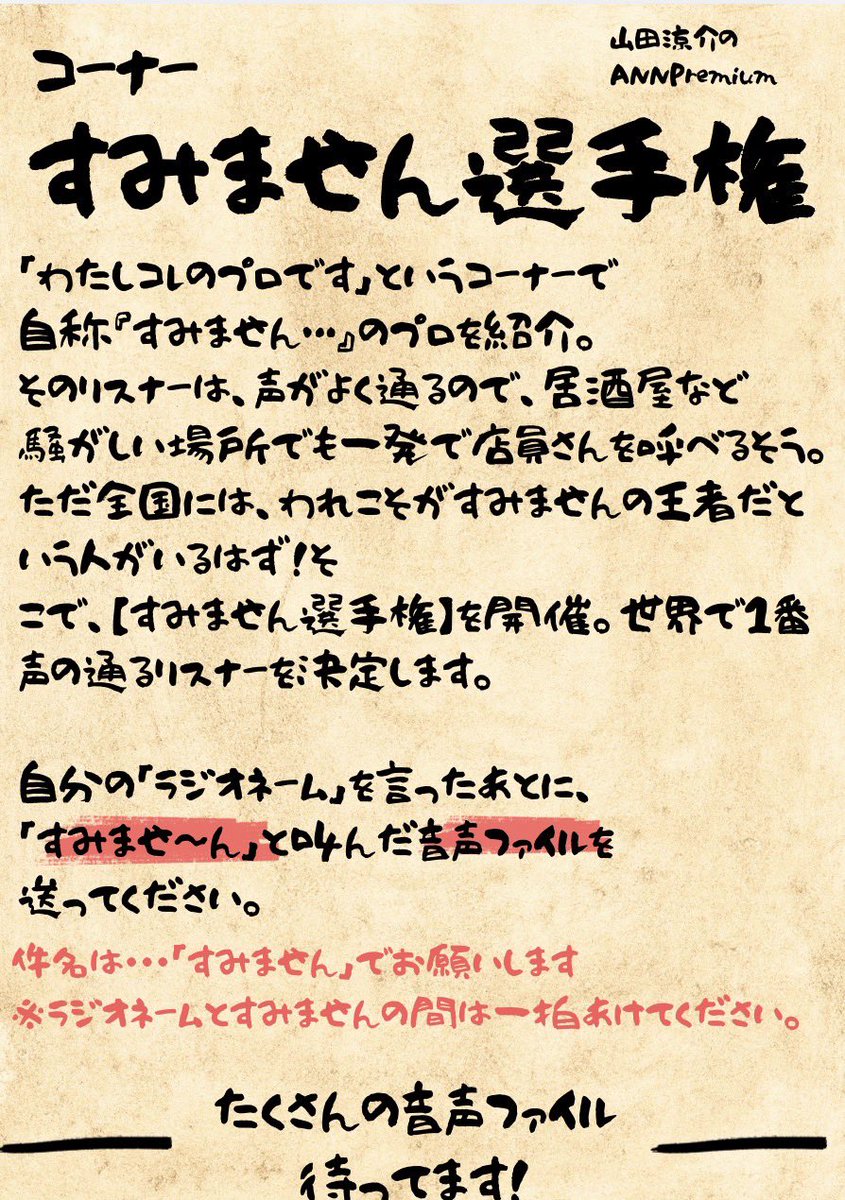 コーナー
山田涼介の
ANNPremium
すみません選手権
「わたしコレのプロです」というコーナーで
自称『すみません…』のプロを紹介。
そのリスナーは、声がよく通るので、居酒屋など
騒がしい場所でも一発で店員さんを呼べるそう。
ただ全国には、われこそがすみませんの王者だと
いう人がいるはず！そ
こで、【すみません選手権】を開催。世界で1番
声の通るリスナーを決定します。
自分の「ラジオネーム」を言ったあとに、
「すみませ〜ん」と叫んだ音声ファイルを
送ってください。
件名は・・・「すみません」でお願いします
※ラジオネームとすみませんの間は一拍あけてください。
たくさんの音声ファイル
待ってます！